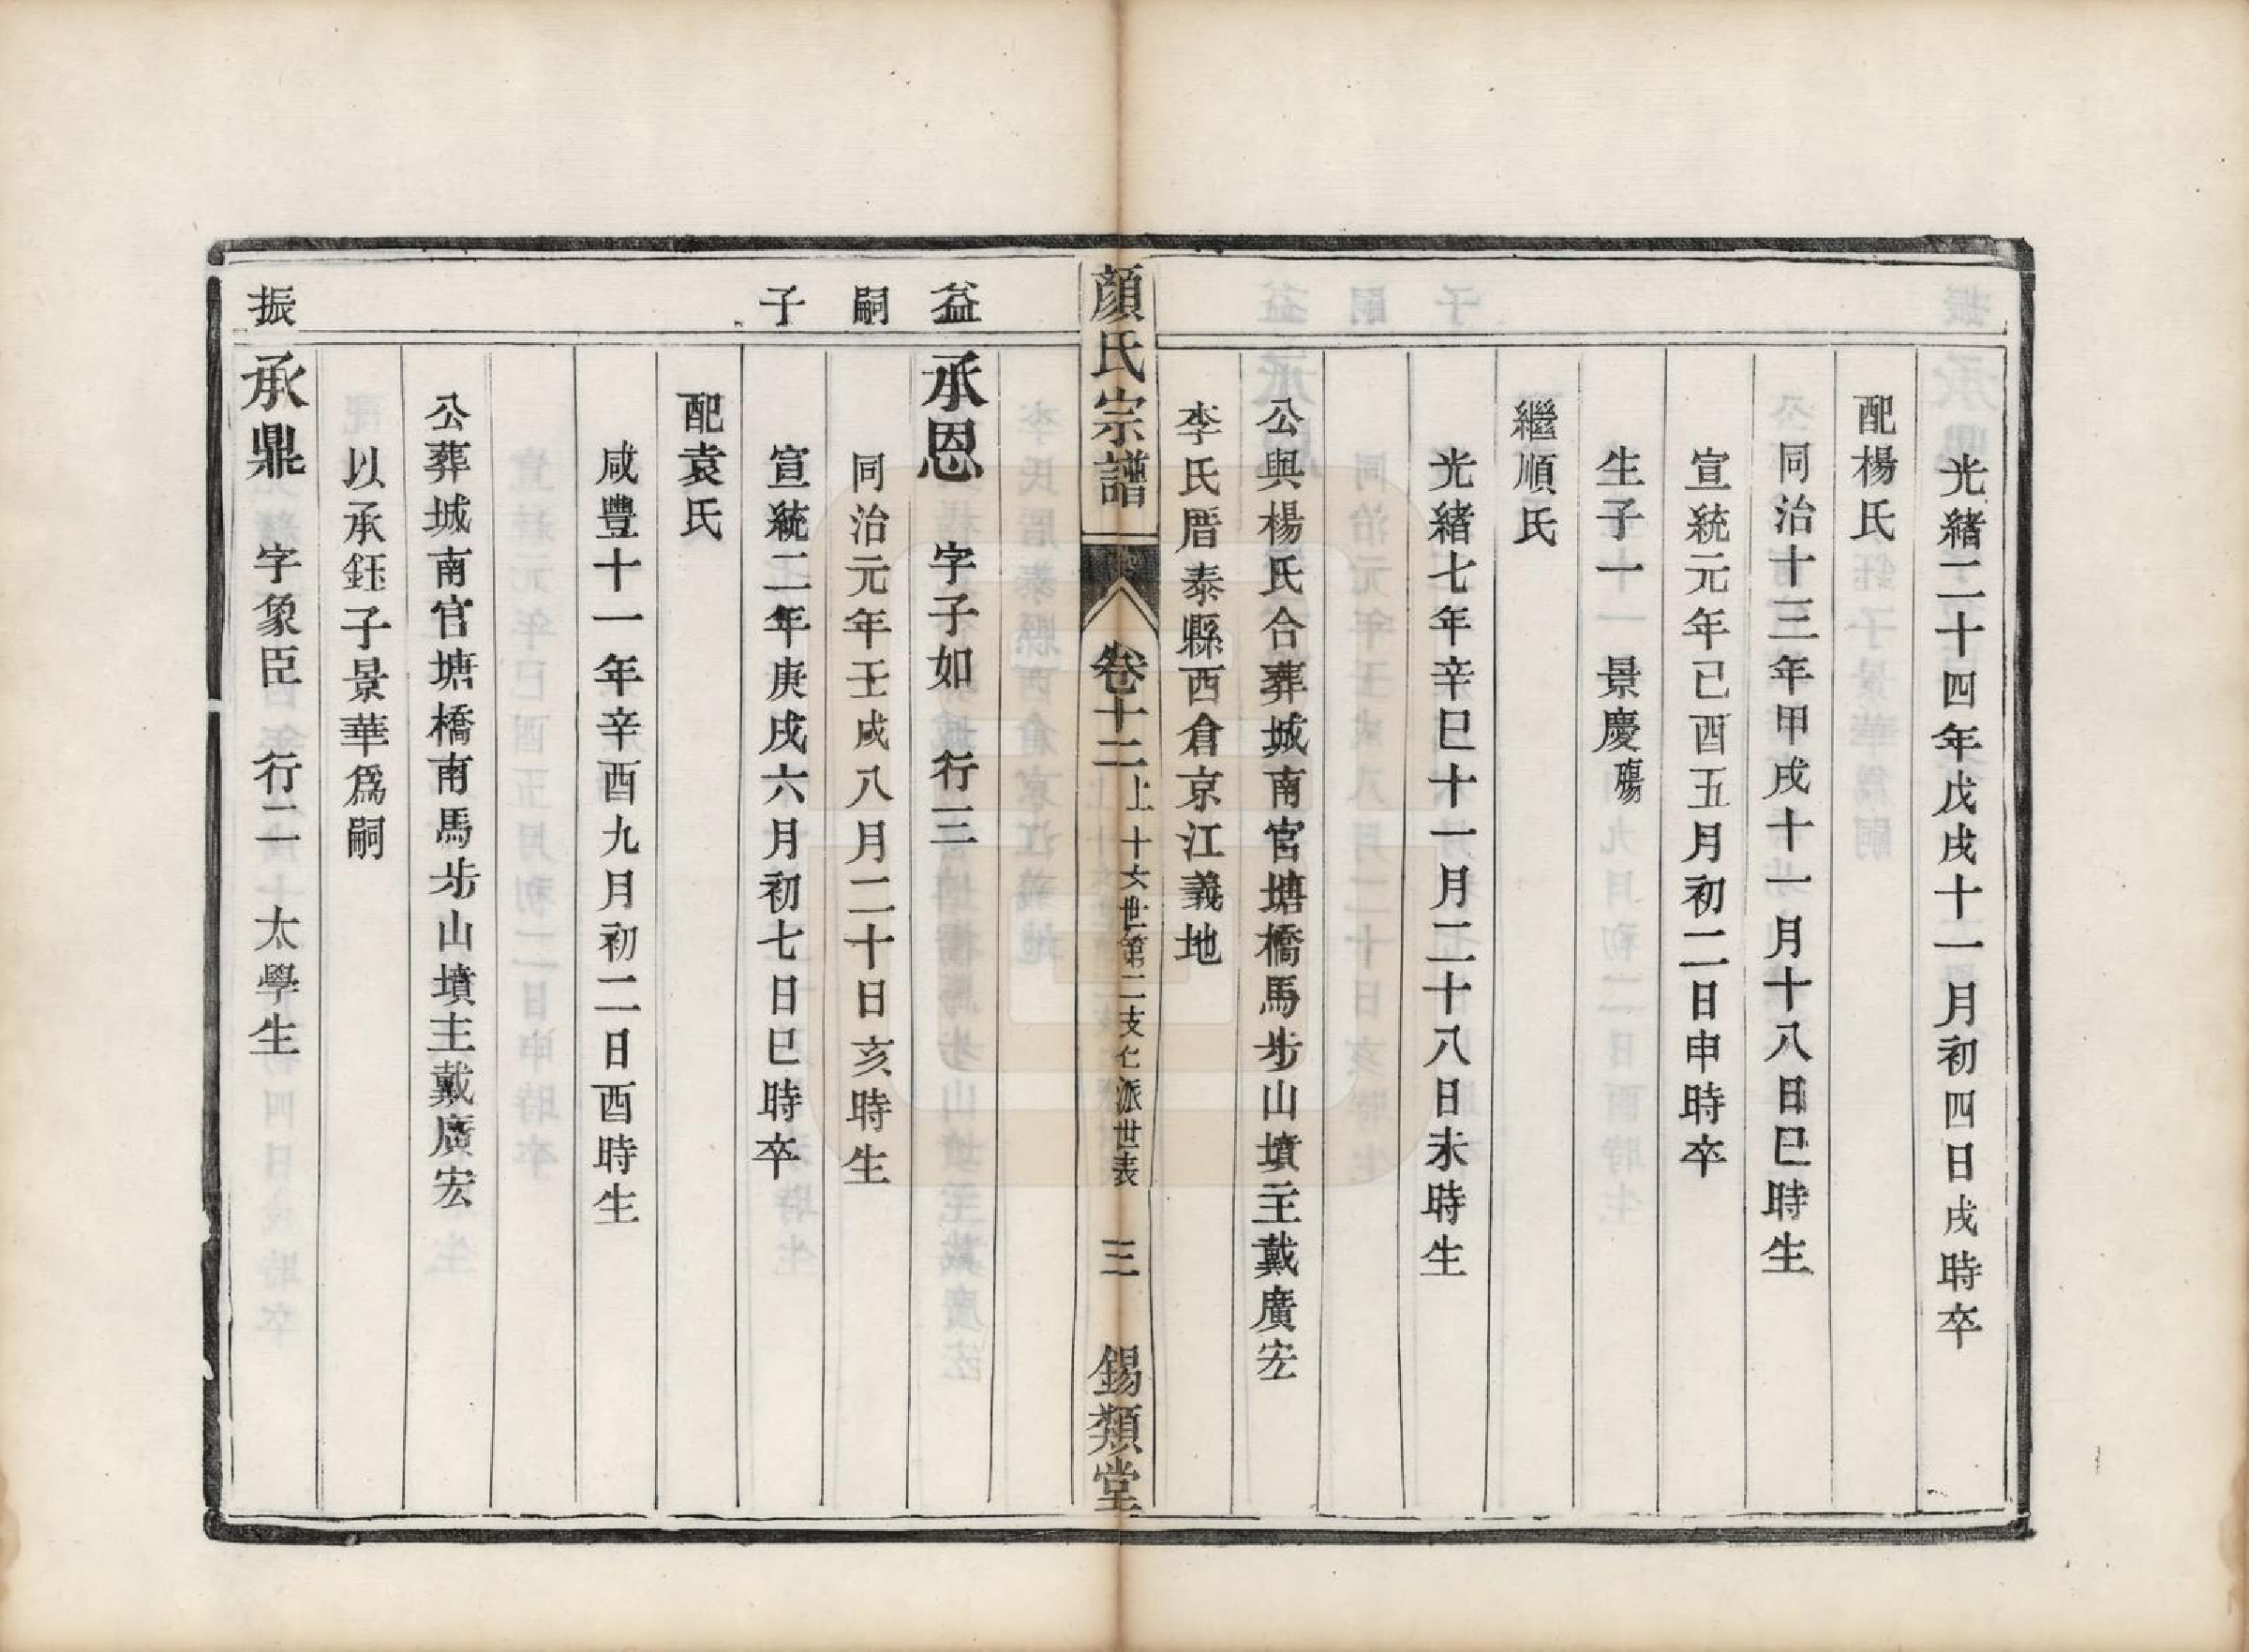 光緒二十四年戊戌十一月初四日戌時卒
配楊氏
同治十三年甲戌十一月十八日巳時生
宣統元年己酉五月初二日申時卒
生子十一 景慶殤
繼順氏
光緒七年辛巳十一月二十八日未時生
公與楊氏合葬城南官塘橋馬步山墳主戴廣宏
李氏厝泰縣西倉京江義地
顏氏宗譜 卷十二上 十六世第二支七派世表 三 錫類堂
益嗣子
承恩 字子如 行三
同治元年壬戌八月二十日亥時生
宣統二年庚戌六月初七日巳時卒
配袁氏
咸豐十一年辛酉九月初二日酉時生
公葬城南官塘橋南馬步山墳主戴廣宏
以承鈺子景華爲嗣
振
承鼎 字象臣 行二 太學生